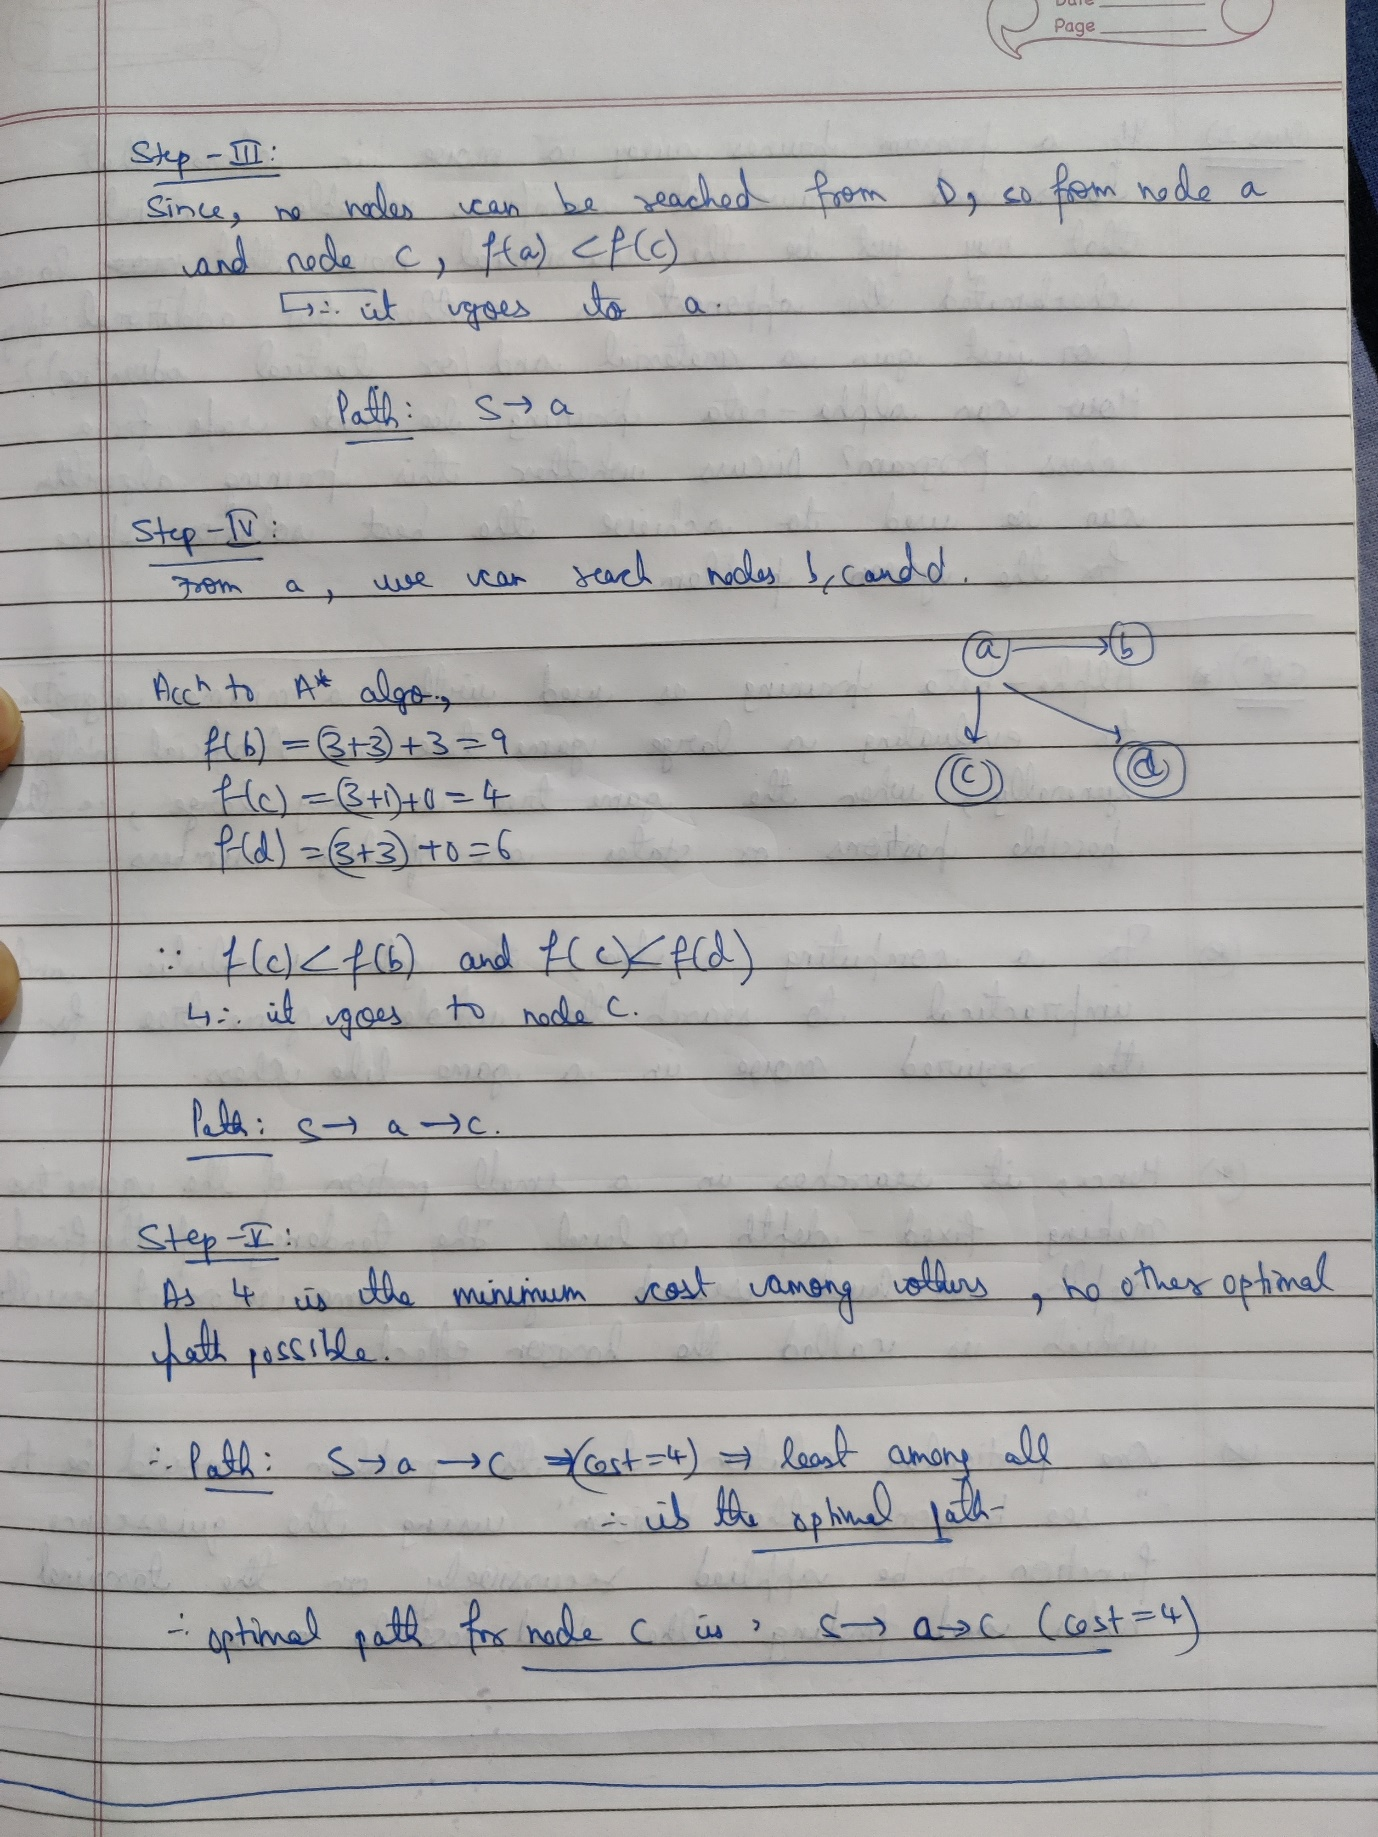 Date
Page
Step - III:
Since, no nodes can be reached from D, so from node a
and node c, f(a) < f(c)
↳ ∴ it goes to a.
Path: S → a
Step - IV:
From a, we can reach nodes b, c and d.
a b
Accn to A* algo.,
f(b) = (3+3) + 3 = 9
f(c) = (3+1) + 0 = 4
c d
f(d) = (3+3) + 0 = 6
∵ f(c) < f(b) and f(c) < f(d)
↳ ∴ it goes to node C.
Path: S → a → c.
Step - V:
As 4 is the minimum cost among others, no other optimal
path possible.
∴ Path: S → a → c ⇒ (cost = 4) ⇒ least among all
∴ it's the optimal path
∴ optimal path for node c is, S → a → c (cost = 4)